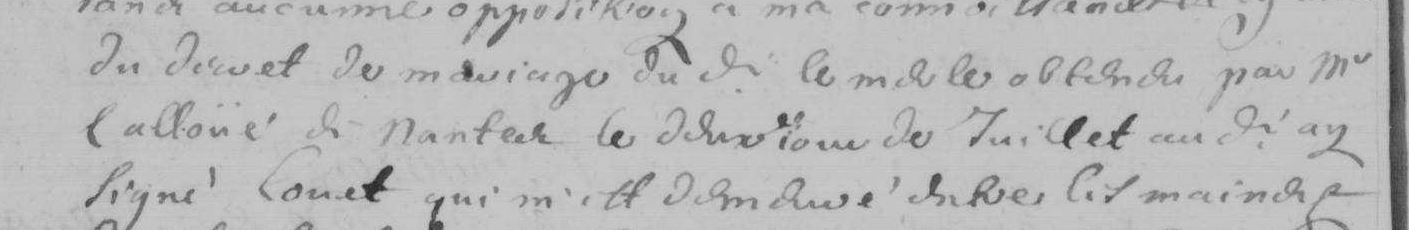 aucunne opposition a ma connoissance
du decret de mariage du d. le merle obtenu par Mr
l'alloüé de Nantes le deuxe jour de Juillet au d. an
signé Couet qui m'est demeuré entre les mains